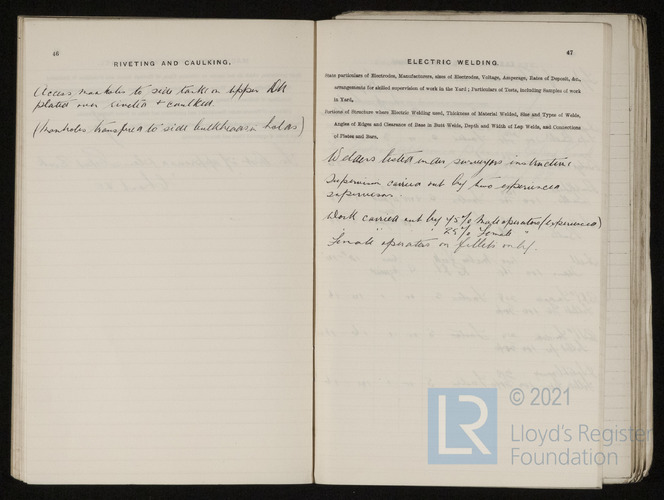 46
RIVETING AND CAULKING.
Access manholes to side tanks on upper dk
plated over riveted + caulked.
(Manholes transferred to side bulkheads in holds)
47
ELECTRIC WELDING.
State particulars of Electrodes, Manufacturers, sizes of Electrodes, Voltage, Amperage, Rates of Deposit, &c.,
arrangements for skilled supervision of work in the Yard; Particulars of Tests, including Samples of work
in Yard,
Portions of Structure where Electric Welding used, Thickness of Material Welded, Size and Types of Welds,
Angles of Edges and Clearance of Base in Butt Welds, Depth and Width of Lap Welds, and Connections
of Plates and Bars,
Welders tested under surveyors instructions
Supervision carried out by two experienced
supervisors.
Work carried out by 75% male operators (experienced)
" " " 25% Female "
Female operators on fillets only.
© 2021
LR
Lloyd's Register
Foundation